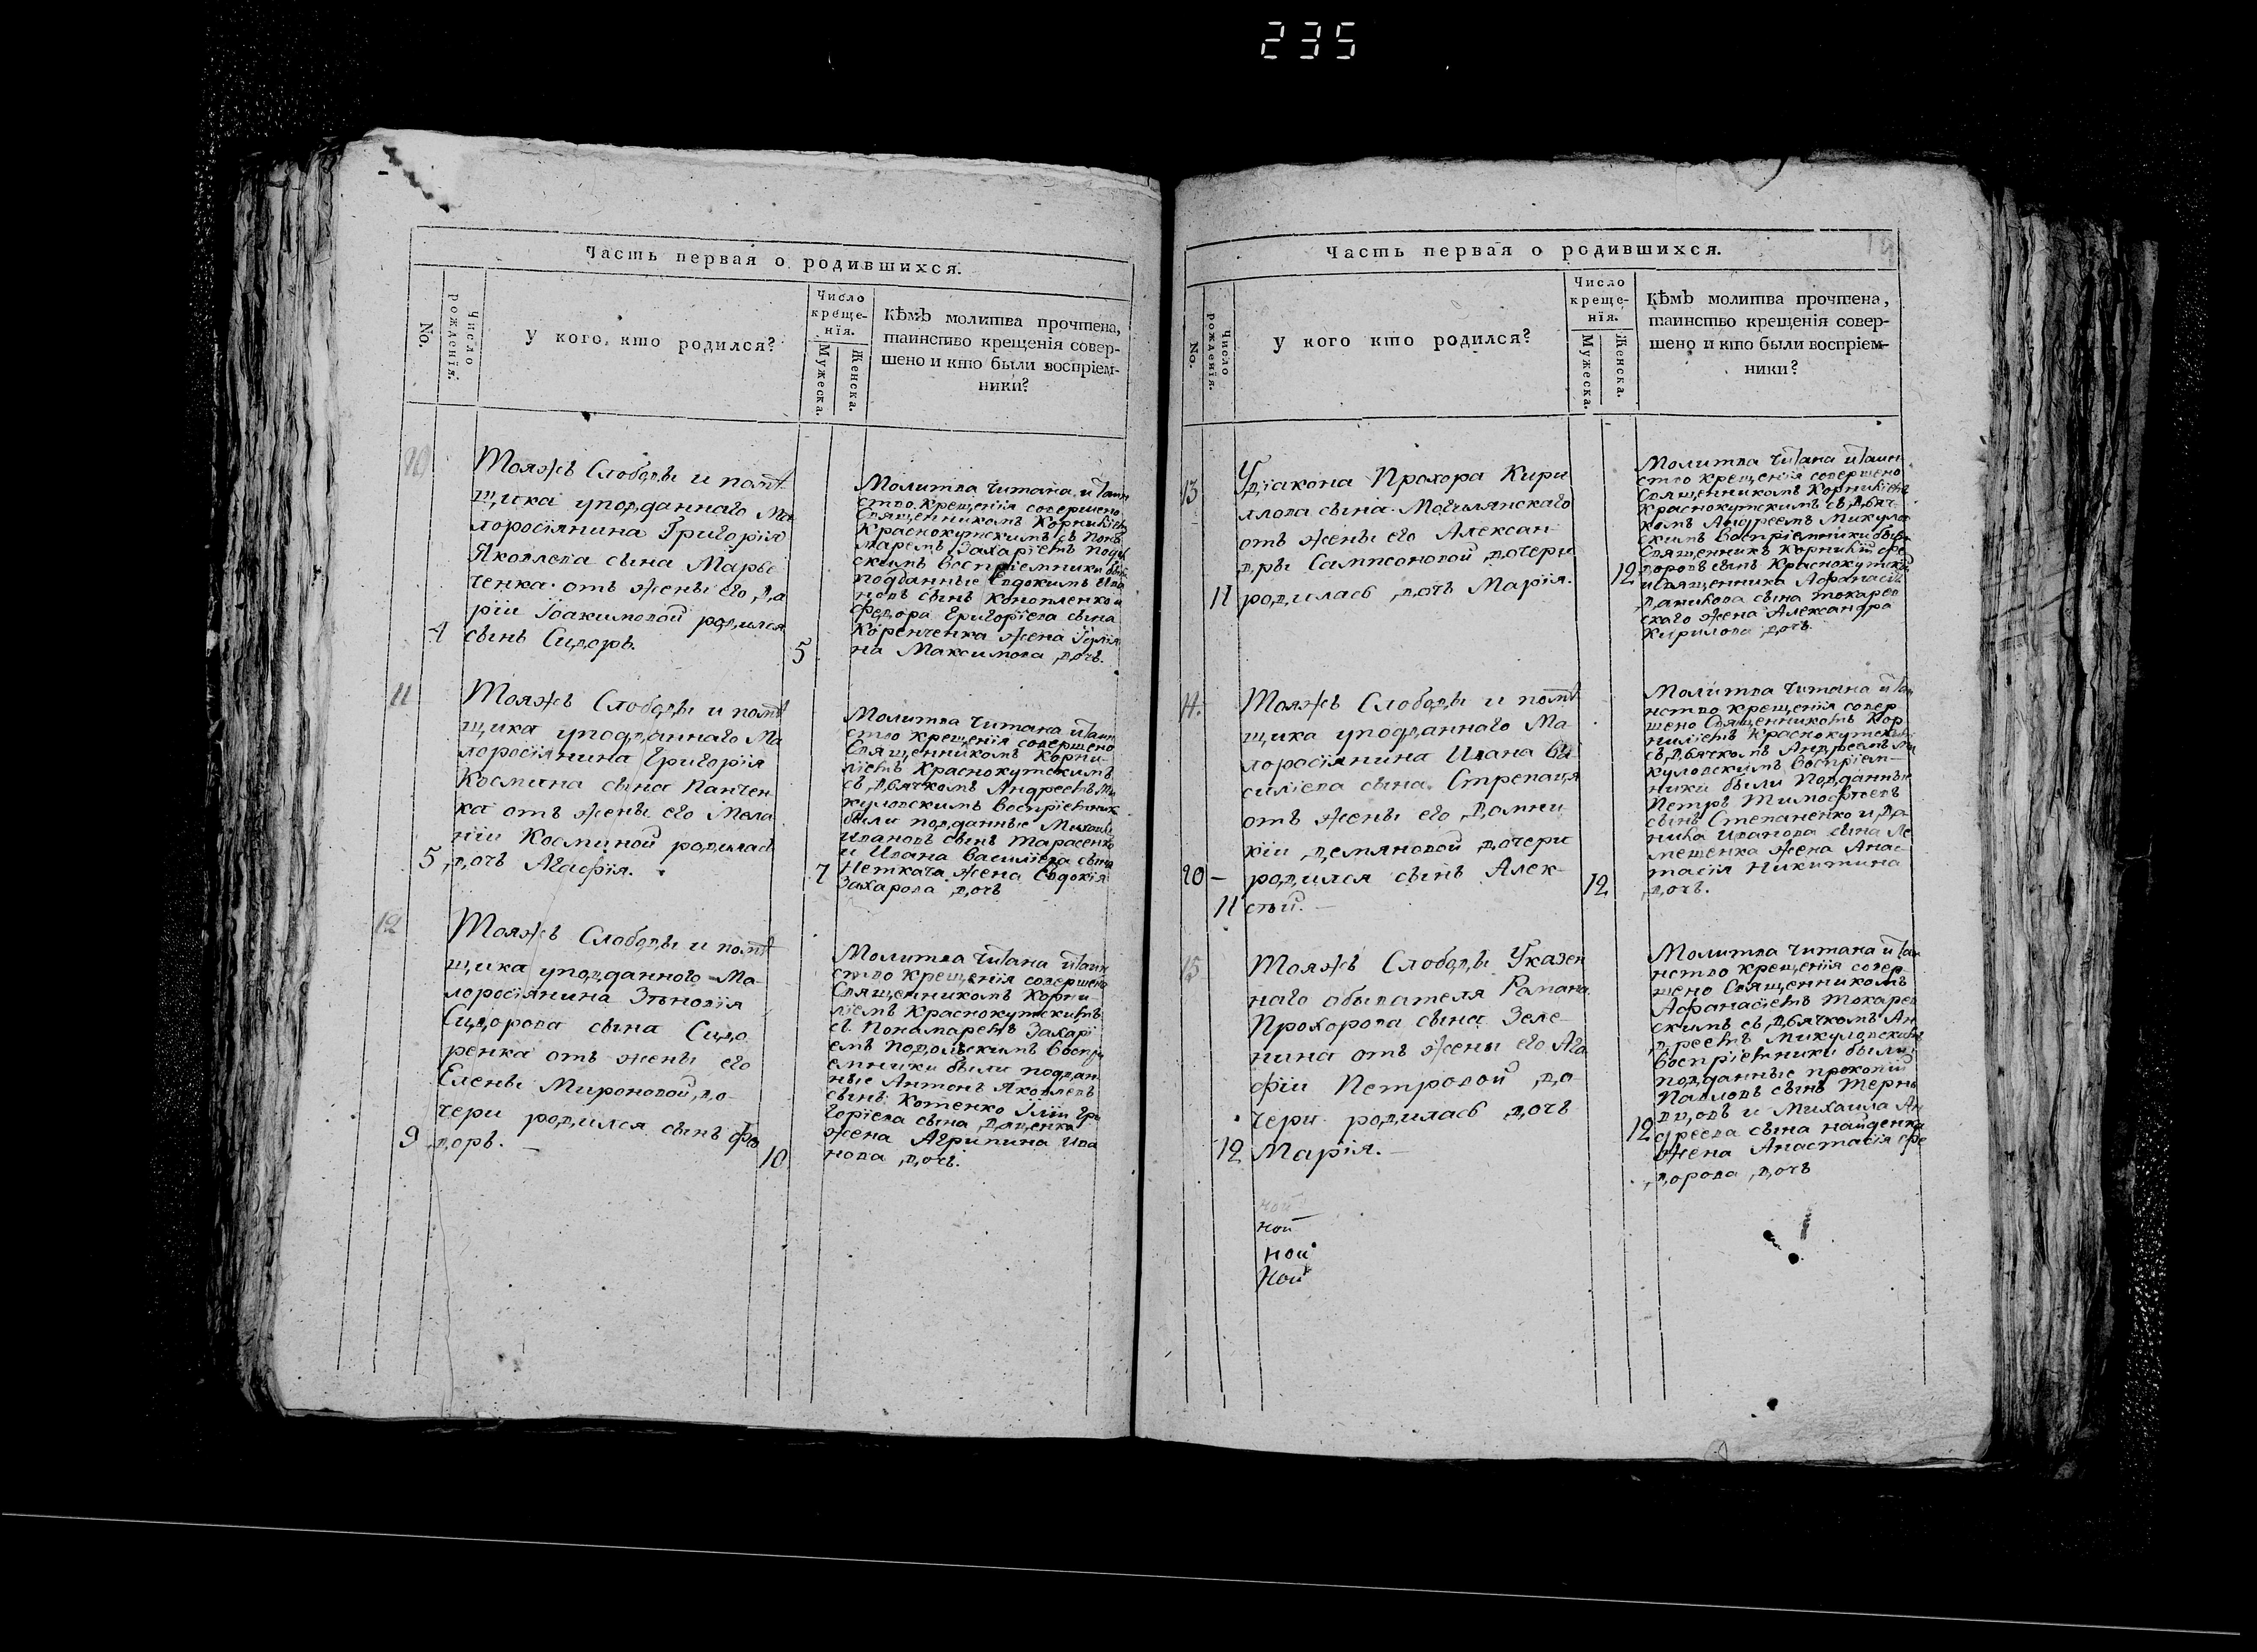 235
Часть первая о родившихся.
No.
Число рожденїя.
У кого, кто родился?
Число
креще-
нїя.
Мужеска.
Женска.
Кѣмъ молитва прочтена,
таинство крещенїя совер-
шено и кто были воспрїем-
ники?
10
Тояжъ Слободы и помѣ
щика уподданнаго Ма
лоросїянина Григорїя
Яковлева сына Марье
ченка отъ жены его Да
рїи Іоакимовой родился
4
сынъ Сидоръ.
5
Молитва читана и таин
ство крещенїя совершено
Священникомъ Корнилїемъ
Краснокутскимъ съ Поно
маремъ Захарїемъ Подол
скимъ воспрїемники были
подданные Евдокимъ Ива
новъ сынъ Конопленко и
Федора Григорїева сына
Коренченка жена Їулїя
на Максимова дочь.
11
Тояжъ Слободы и помѣ
щика уподданнаго Ма
лоросїянина Григорїя
Космина сына Панчен
ка отъ жены его Мела
нїи Косминой родилась
5
дочь Агафїя.
7
Молитва читана и таин
ство крещенїя совершено
Священникомъ Корни-
лїемъ Краснокутскимъ
съ Дьячкомъ Андреемъ Ми
куловскимъ воспрїемник
были подданные Михаилъ
Ивановъ сынъ Тарасенко
и Ивана Василїева сына
Неткача жена Евдокїя
Захарова дочь
12
Тояжъ Слободы и помѣ
щика уподданного Ма-
лоросїянина Зѣновїя
Сидорова сына Сидо
ренка отъ жены его
Елены Мироновой до-
чери родился сынъ Фео
9
доръ.
10
Молитва читана и таин
ство крещенїя совершено
Священникомъ Корни-
лїемъ Краснокутскимъ
съ Пономаремъ Захарї
емъ Подольскимъ воспрї
емники были поддан
ные Антонъ Яковлевъ
сынъ Котенко Їлїи Гри
горїева сына Даценка
жена Агрипина Ива
нова дочь.
Часть первая о родившихся.
No.
Число рожденїя.
У кого кто родился?
Число
креще-
нїя.
Мужеска.
Женска.
Кѣмъ молитва прочтена,
таинство крещенїя совер-
шено и кто были воспрїем-
ники?
13
Удїакона Прохора Кири
ллова сына Могилянскаго
отъ жены его Алексан-
дры Сампсоновой дочери
11
родилась дочь Марїя.
12
Молитва читана и таин
ство крещенїя совершено
Священникомъ Корнилїемъ
Краснокутскимъ съ Дьяч-
комъ Андреемъ Микулов
скимъ воспрїемники были
Священникъ Корнилїй Фе
доровъ сынъ Краснокутскїй
и священника Афанасїя
Данилова сына Токарев
скаго жена Александра
Кирилова дочь.
14.
Тояжъ Слободы и помѣ
щика уподданнаго Ма-
лоросїянина Ивана Ва
силїева сына Стрепаця
отъ жены его Домни-
кїи Демяновой дочери
20 —
родился сынъ Алек-
11
сѣй. —
12
Молитва читана и таи
нство крещенїя совер
шено Священникомъ Кор
нилїемъ Краснокутскимъ
съ Дьячкомъ Андреемъ Ми
куловскимъ воспрїем-
ники были Подданные
Петръ Тимофѣевъ
сынъ Степаненко и Да-
нила Иванова сына Ле
мешенка жена Анас-
тасїя Никитина
дочь.
15
Тояжъ Слободы Указен
наго обывателя Романа
Прохорова сына Зеле-
нина отъ жены его Ага
фїи Петровой до
чери родилась дочь
12
Марїя. —
12
Молитва читана и таи
нство крещенїя совер-
шено Священникомъ
Афанасїемъ Токарев
скимъ съ Дьячкомъ Ан
дреемъ Микуловскимъ
воспрїемники были
подданные Прокопїй
Павловъ сынъ
и Михаила Ан
дреева сына Найденка
жена Анастасїя Фе
дорова дочь
ной
ной
ной
Ной